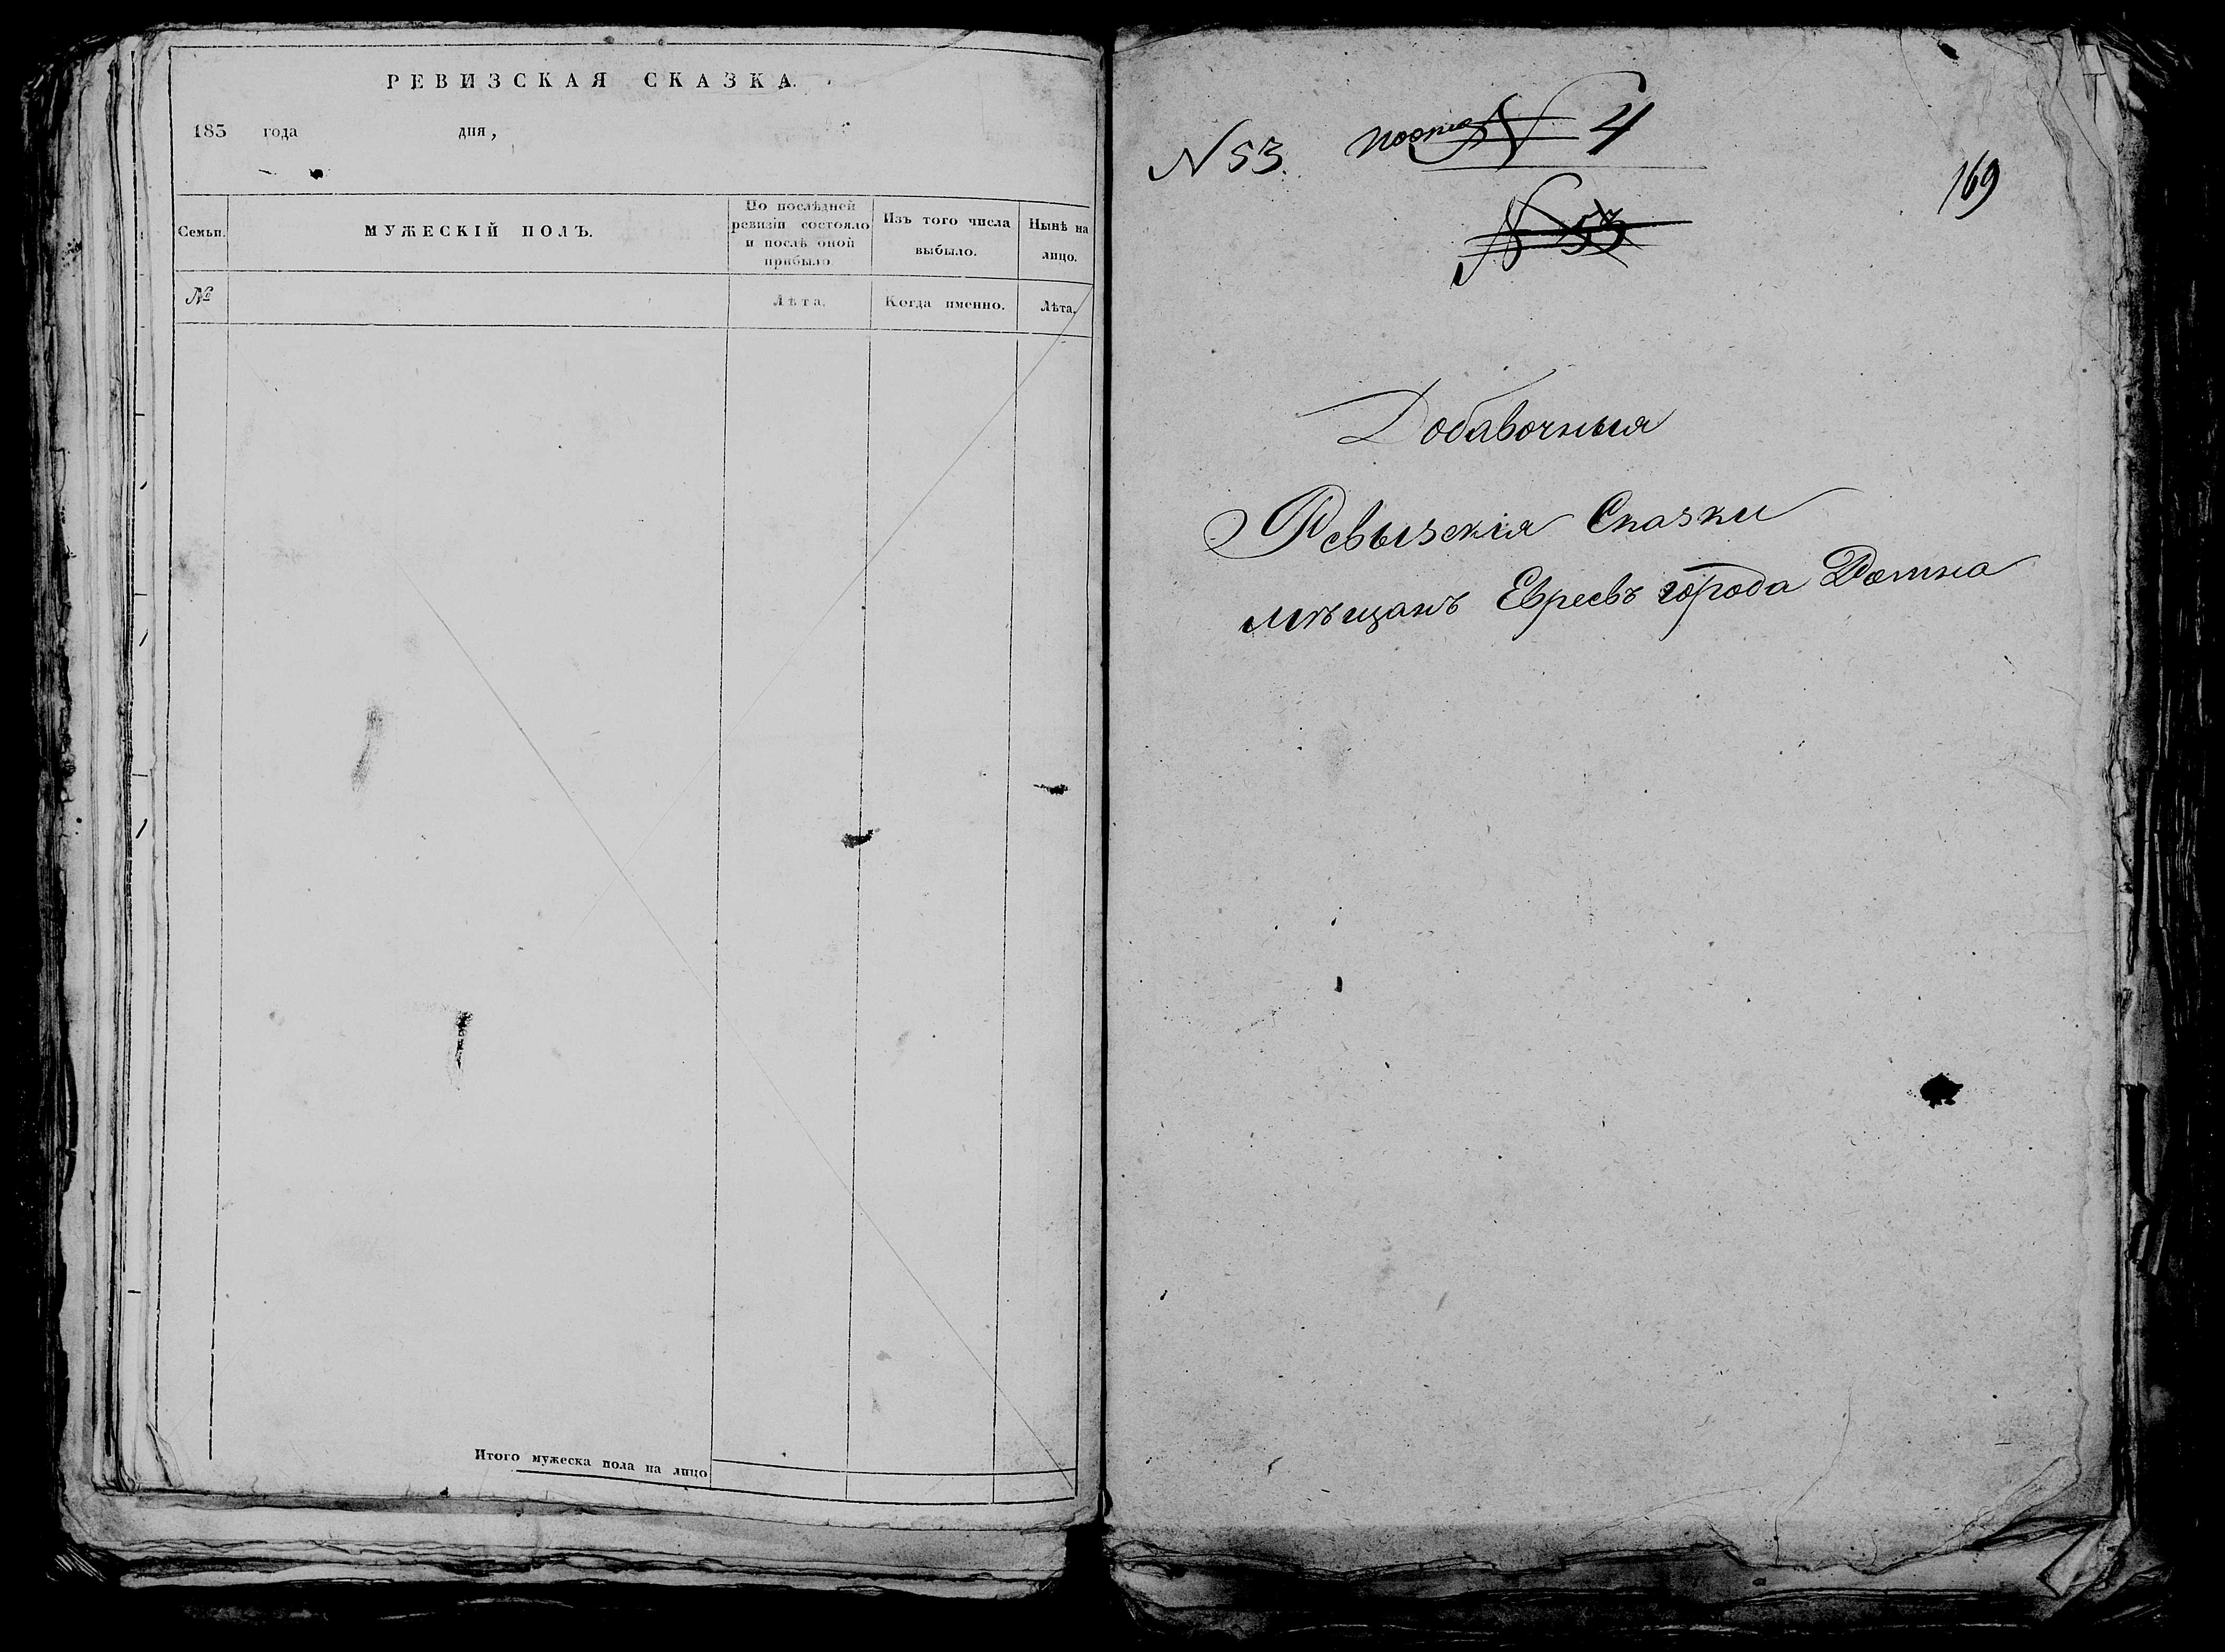 РЕВИЗСКАЯ СКАЗКА.
185 года дня,
Семьи.
МУЖЕСКІЙ ПОЛЪ.
По послѣдней
ревизіи состояло
и послѣ оной
прибыло.
Изъ того числа
выбыло.
Нынѣ на
лицо.
№
Лѣта.
Когда именно.
Лѣта.
Итого мужеска пола на лицо
N 53.
N 4
N 53
169
Добавочныя
Ревызскія Сказки
мѣщанъ Евреевъ города Ромна